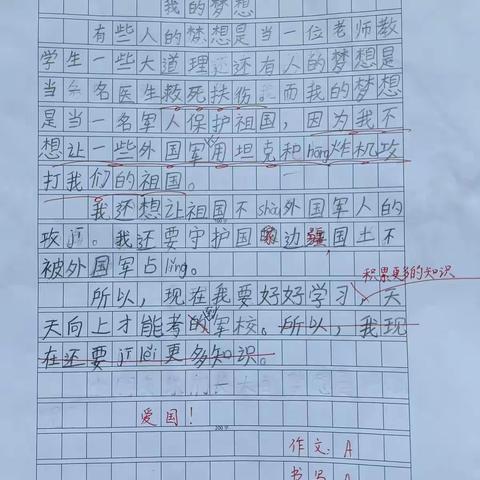 我的梦想
有些人的梦想是当一位老师教
学生一些大道理还还有人的梦想是
当一名医生救死扶伤。而我的梦想
是当一名军人保护祖国，因为我不
想让一些外国军用坦克和hōng炸机攻
打我们的祖国。
我还想让祖国不shòu外国军人的
攻jī。我还要守护国家边疆，国土不
被外国军占lǐng。
积累更多的知识
所以，现在我要好好学习，天
天向上才能考的军校。所以，我现
在还要jī lěi更多知识。
200字
爱国！
作文：A
书写：A